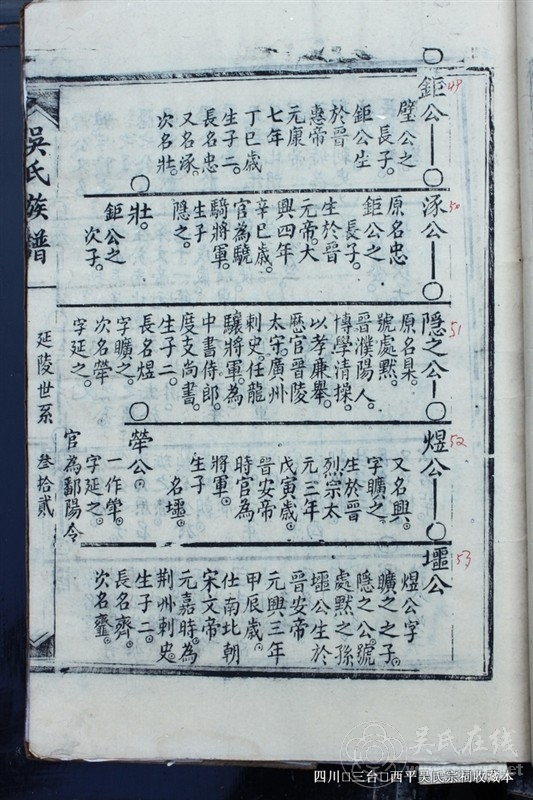 鉅公 49
璧公之
長子。
鉅公生
於晉
惠帝
元康
七年
丁巳歲
生子二。
長名忠
又名涿。
次名壯。
涿公 50
原名忠
鉅公之
長子。
生於晉
元帝大
興四年
辛巳歲。
官為驍
騎將軍。
生子
隱之。
壯。
鉅公之
次子。
隱之公 51
原名
號處默。
晉濮陽人。
博學清操。
以孝廉舉。
歷官晉陵
太守。廣州
刺史。任龍
驤將軍。為
中書侍郎。
度支尚書。
生子二。
長名煜
字曠之。
次名犖
字延之。
煜公 52
又名興。
字曠之。
生於晉
烈宗太
元三年
戊寅歲。
晉安帝
時官為
將軍。
生子
名壃。
犖公。
一作犖。
字延之。
官為鄱陽令
壃公 53
煜公字
曠之之子。
隱之公號
處默之孫
壃公生於
晉安帝
元興三年
甲辰歲。
仕南北朝
宋文帝
元嘉時為
荊州刺史。
生子二。
長名齊。
次名
吳氏族譜
延陵世系
叁拾貳
吴氏在线
四川□三台□西平吴氏宗祠收藏本